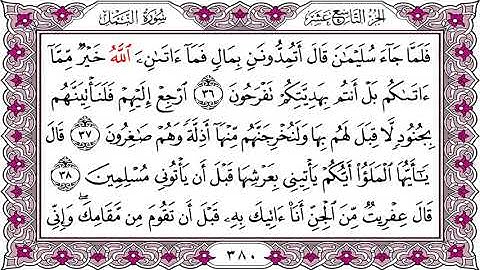 الجزء التاسع عشر سورة النمل
فَلَمَّا جَآءَ سُلَيْمَٰنَ قَالَ أَتُمِدُّونَنِ بِمَالٍ فَمَآ ءَاتَىٰنِۦَ ٱللَّهُ خَيْرٌ مِّمَّآ
ءَاتَىٰكُم بَلْ أَنتُم بِهَدِيَّتِكُمْ تَفْرَحُونَ ٣٦ ٱرْجِعْ إِلَيْهِمْ فَلَنَأْتِيَنَّهُم
بِجُنُودٍ لَّا قِبَلَ لَهُم بِهَا وَلَنُخْرِجَنَّهُم مِّنْهَآ أَذِلَّةً وَهُمْ صَٰغِرُونَ ٣٧ قَالَ
يَٰٓأَيُّهَا ٱلْمَلَؤُا۟ أَيُّكُمْ يَأْتِينِى بِعَرْشِهَا قَبْلَ أَن يَأْتُونِى مُسْلِمِينَ ٣٨
قَالَ عِفْرِيتٌ مِّنَ ٱلْجِنِّ أَنَا۠ ءَاتِيكَ بِهِۦ قَبْلَ أَن تَقُومَ مِن مَّقَامِكَ ۖ وَإِنِّى
٣٨٠